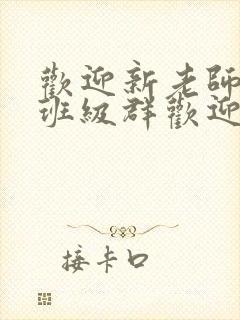 歡迎新老師
班級群歡迎
接卡口